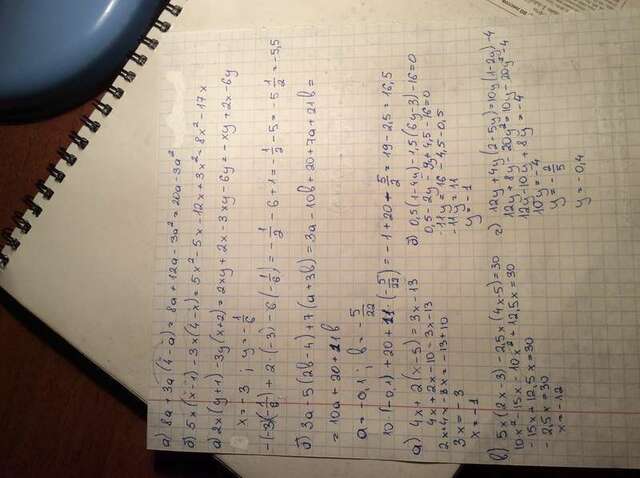 а) 8a + 3a (4 - a) = 8a + 12a - 3a² = 20a - 3a²
б) 5x (x - 1) - 3x (4 - x) = 5x² - 5x - 12x + 3x² = 8x² - 17x
а) 2x (y + 1) - 3y (x + 2) = 2xy + 2x - 3xy - 6y = -xy + 2x - 6y
x = -3 ; y = -1/6
-(-3)(-1/6) + 2·(-3) - 6(-1/6) = -1/2 - 6 + 1 = -1/2 - 5 = -5 1/2 = -5,5
б) 3a - 5(2b - 4) + 7(a + 3b) = 3a - 10b + 20 + 7a + 21b =
= 10a + 20 + 11b
a = -0,1 ; b = -5/22
10·(-0,1) + 20 + 11·(-5/22) = -1 + 20 - 5/2 = 19 - 2,5 = 16,5
а) 4x + 2(x - 5) = 3x - 13
4x + 2x - 10 = 3x - 13
2x + 4x - 3x = -13 + 10
3x = -3
x = -1
б) 0,5(1 - 4y) - 1,5(6y - 3) - 16 = 0
0,5 - 2y - 9y + 4,5 - 16 = 0
-11y = 16 - 4,5 - 0,5
-11y = 11
y = -1
в) 5x (2x - 3) - 2,5x (4x - 5) = 30
10x² - 15x - 10x² + 12,5x = 30
-15x + 12,5x = 30
-2,5x = 30
x = -12
г) 12y + 4y (2 - 5y) = 10y (1 - 2y) - 4
12y + 8y - 20y² = 10y - 20y² - 4
12y - 10y + 8y = -4
10y = -4
y = -2/5
y = -0,4